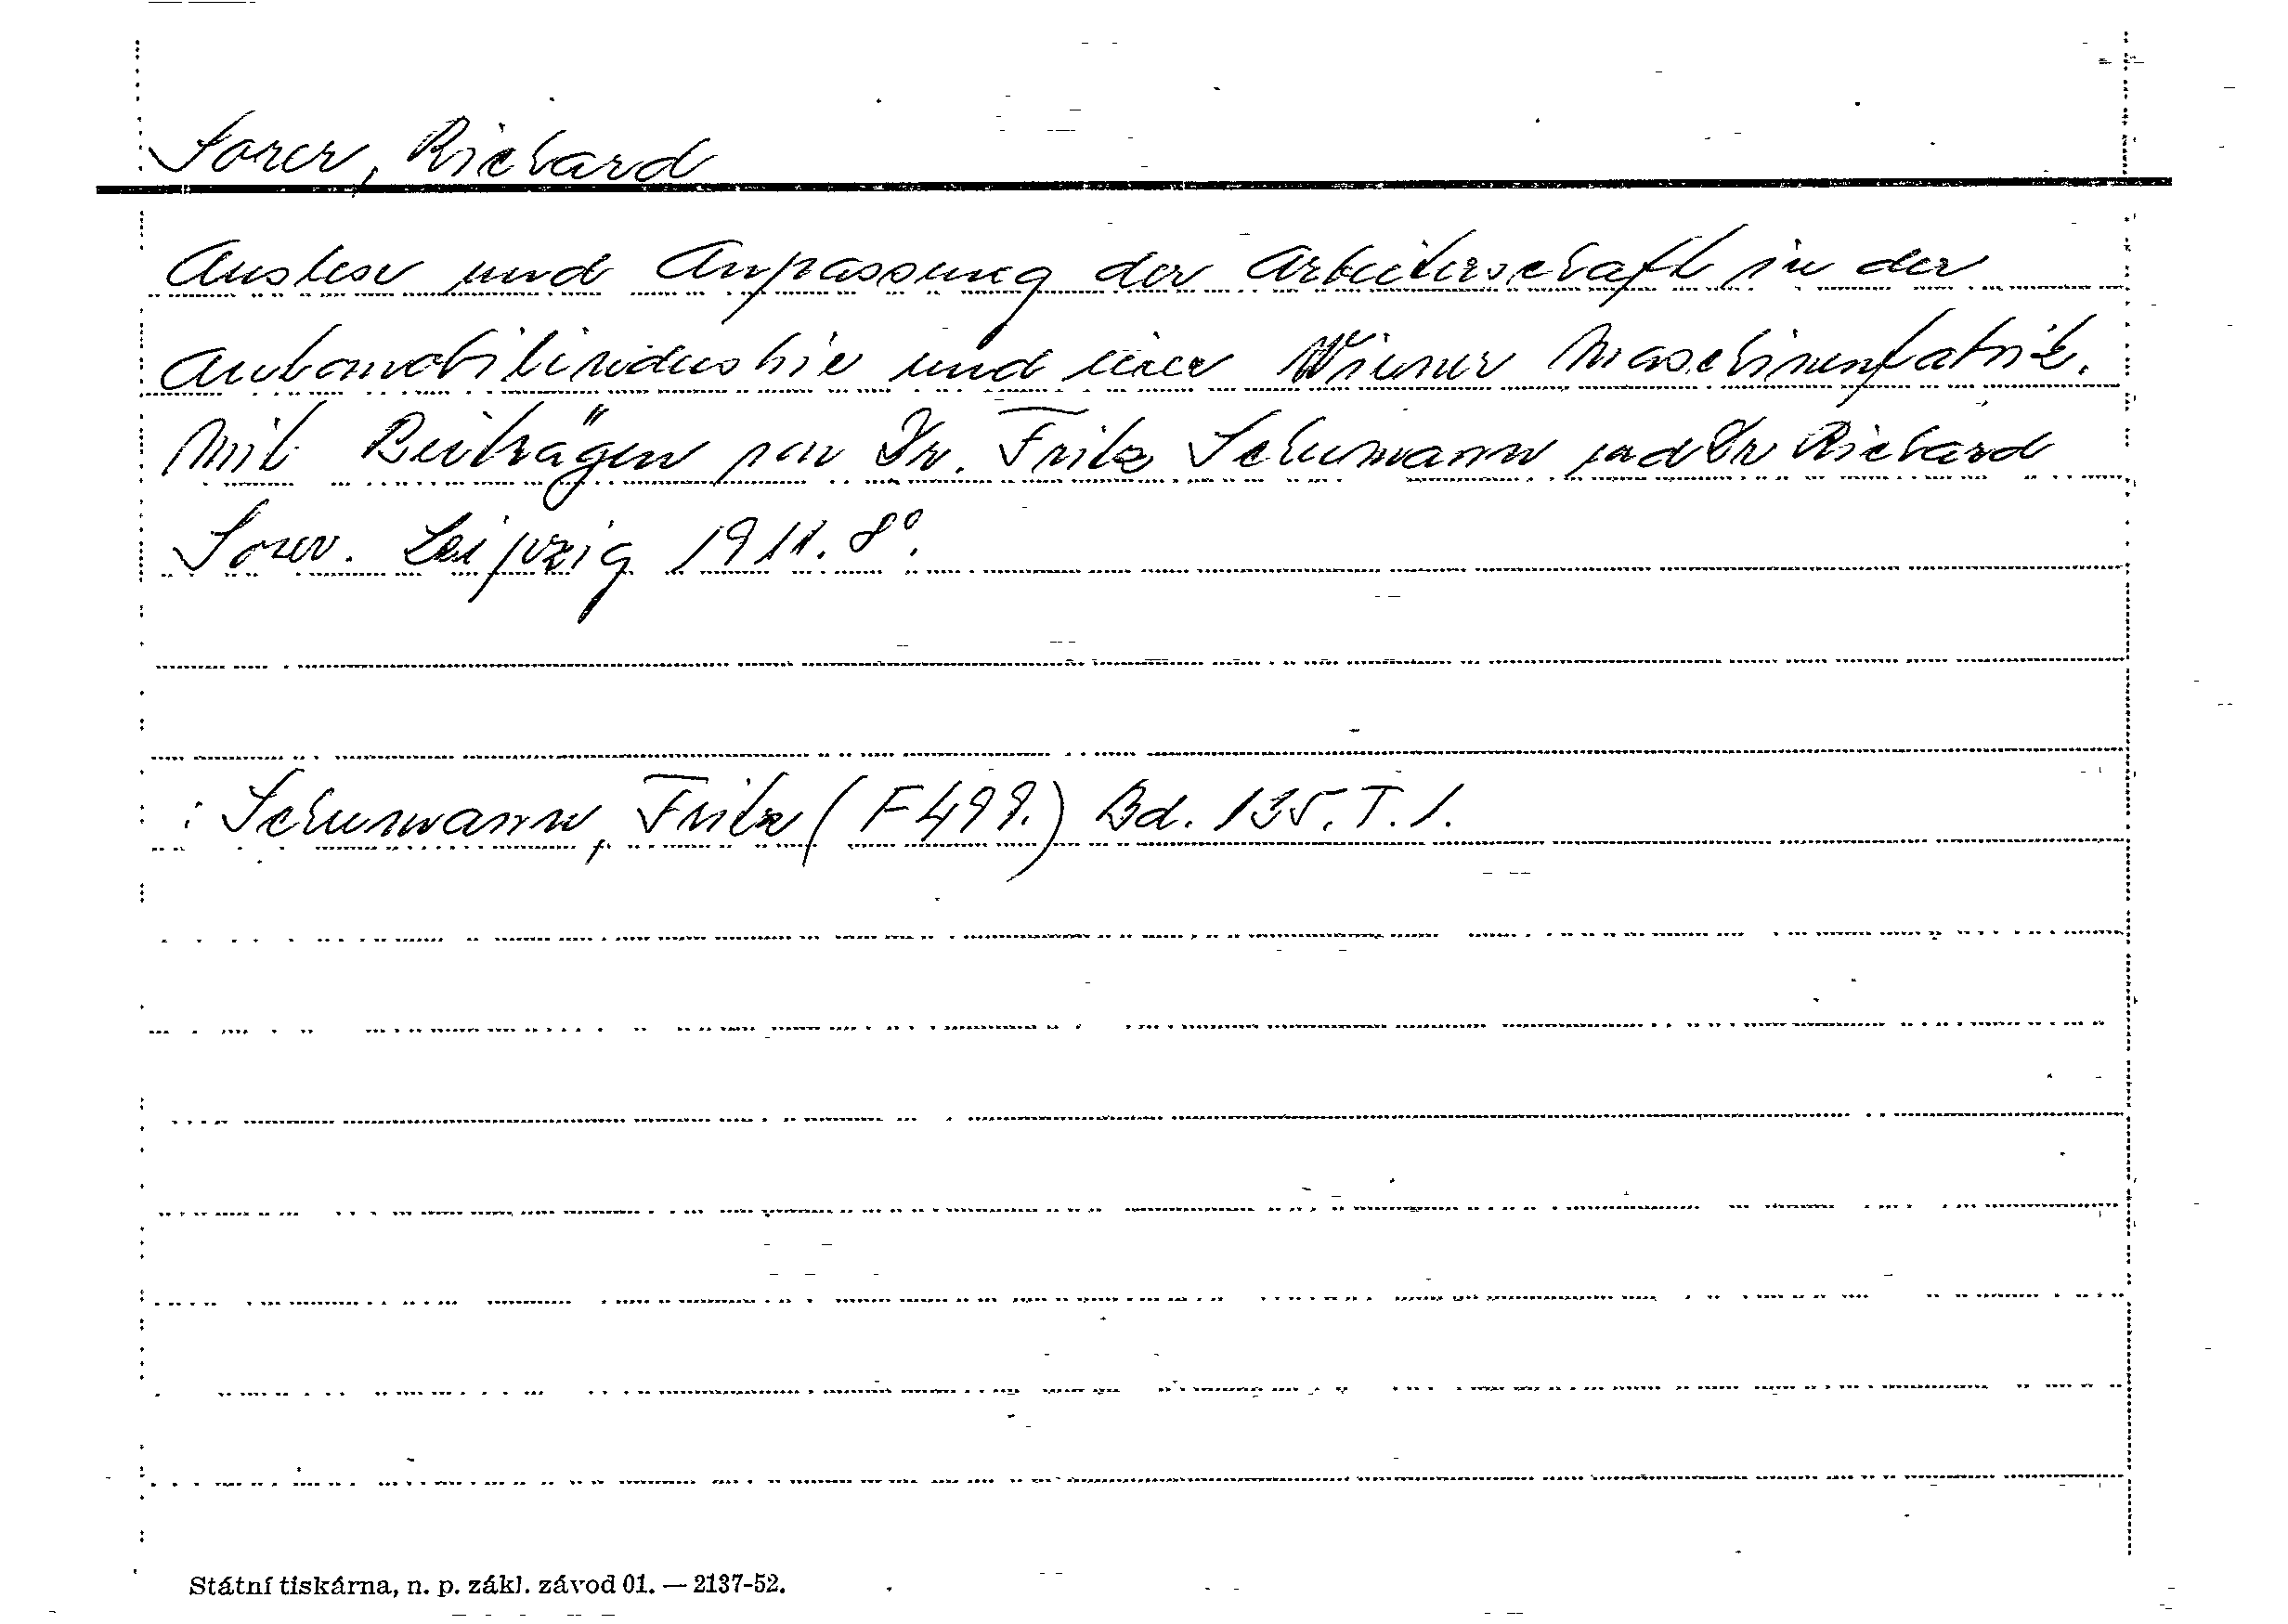 Sorer, Richard
Auslese und Anpassung der Arbeiterschaft in der
Automobilindustrie und einer Wiener Maschinenfabrik.
Mit Beiträgen von Dr. Fritz Schumann und Dr Richard
Sorer. Leipzig 1911. 8°.
: Schumann, Fritz (F 499.) Bd. 135. T. 1.
Státní tiskárna, n. p. zákl. závod 01. — 2137-52.